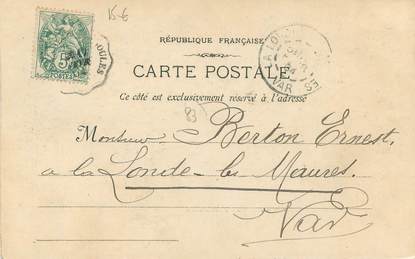 15-E
RÉPUBLIQUE FRANÇAISE
CARTE POSTALE
Ce côté est exclusivement réservé à l'adresse
5
POSTES
OULES
LA LON
VAR
83
Monsieur Berton Ernest,
a la Londe-les Maures.
Var